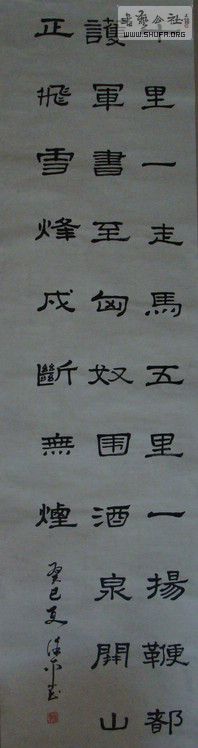 十里一走馬五里一揚鞭都
護軍書至匈奴围酒泉關山
正飛雪烽戍斷無煙
癸巳夏
WWW.SHUFA.ORG